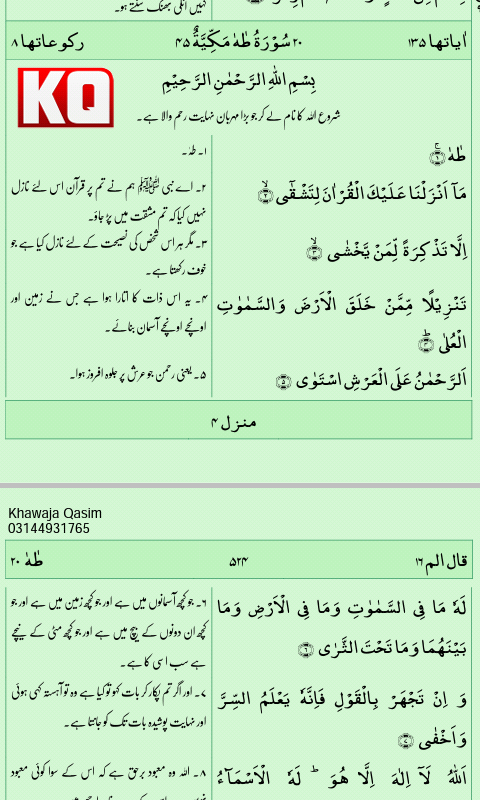 نہیں انکی بھنک سنتے ہو۔
اٰیاتها ۱۳۵ ۲۰ سُوْرَةُ طٰهٰ مَكِّيَّةٌ ۴۵ رکوعاتها ۸
KQ
بِسْمِ اللّٰهِ الرَّحْمٰنِ الرَّحِيْمِ
شروع اللہ کا نام لے کر جو بڑا مہربان نہایت رحم والا ہے۔
طٰهٰ ۚ‏﴿۱﴾
۱۔ طٰہٰ۔
مَاۤ اَنْزَلْنَا عَلَيْكَ الْقُرْاٰنَ لِتَشْقٰٓى ۙ‏﴿۲﴾
۲۔ اے نبی ﷺ ہم نے تم پر قرآن اس لئے نازل
نہیں کیا کہ تم مشقت میں پڑ جاؤ۔
اِلَّا تَذْكِرَةً لِّمَنْ يَّخْشٰى ۙ‏﴿۳﴾
۳۔ مگر ہر اس شخص کی نصیحت کے لئے نازل کیا ہے جو
خوف رکھتا ہے۔
تَنْزِيْلًا مِّمَّنْ خَلَقَ الْاَرْضَ وَالسَّمٰوٰتِ
الْعُلٰى ؕ‏﴿۴﴾
۴۔ یہ اس ذات کا اتارا ہوا ہے جس نے زمین اور
اونچے اونچے آسمان بنائے۔
اَلرَّحْمٰنُ عَلَى الْعَرْشِ اسْتَوٰى ﴿۵﴾
۵۔ یعنی رحمن جو عرش پر جلوہ افروز ہوا۔
منزل ۴
Khawaja Qasim
03144931765
قال الم ۱۶ ۵۲۴ طٰهٰ ۲۰
لَهٗ مَا فِى السَّمٰوٰتِ وَمَا فِى الْاَرْضِ وَمَا
بَيْنَهُمَا وَمَا تَحْتَ الثَّرٰى ﴿۶﴾
۶۔ جو کچھ آسمانوں میں ہے اور جو کچھ زمین میں ہے اور جو
کچھ ان دونوں کے بیچ میں ہے اور جو کچھ مٹی کے نیچے
ہے سب اسی کا ہے۔
وَ اِنْ تَجْهَرْ بِالْقَوْلِ فَاِنَّهٗ يَعْلَمُ السِّرَّ
وَاَخْفٰى ﴿۷﴾
۷۔ اور اگر تم پکار کر بات کہو تو کیا ہے وہ تو آہستہ کہی ہوئی
اور نہایت پوشیدہ بات تک کو جانتا ہے۔
اَللّٰهُ لَاۤ اِلٰهَ اِلَّا هُوَ ؕ لَهُ الْاَسْمَآءُ
۸۔ اللہ وہ معبود برحق ہے کہ اس کے سوا کوئی معبود